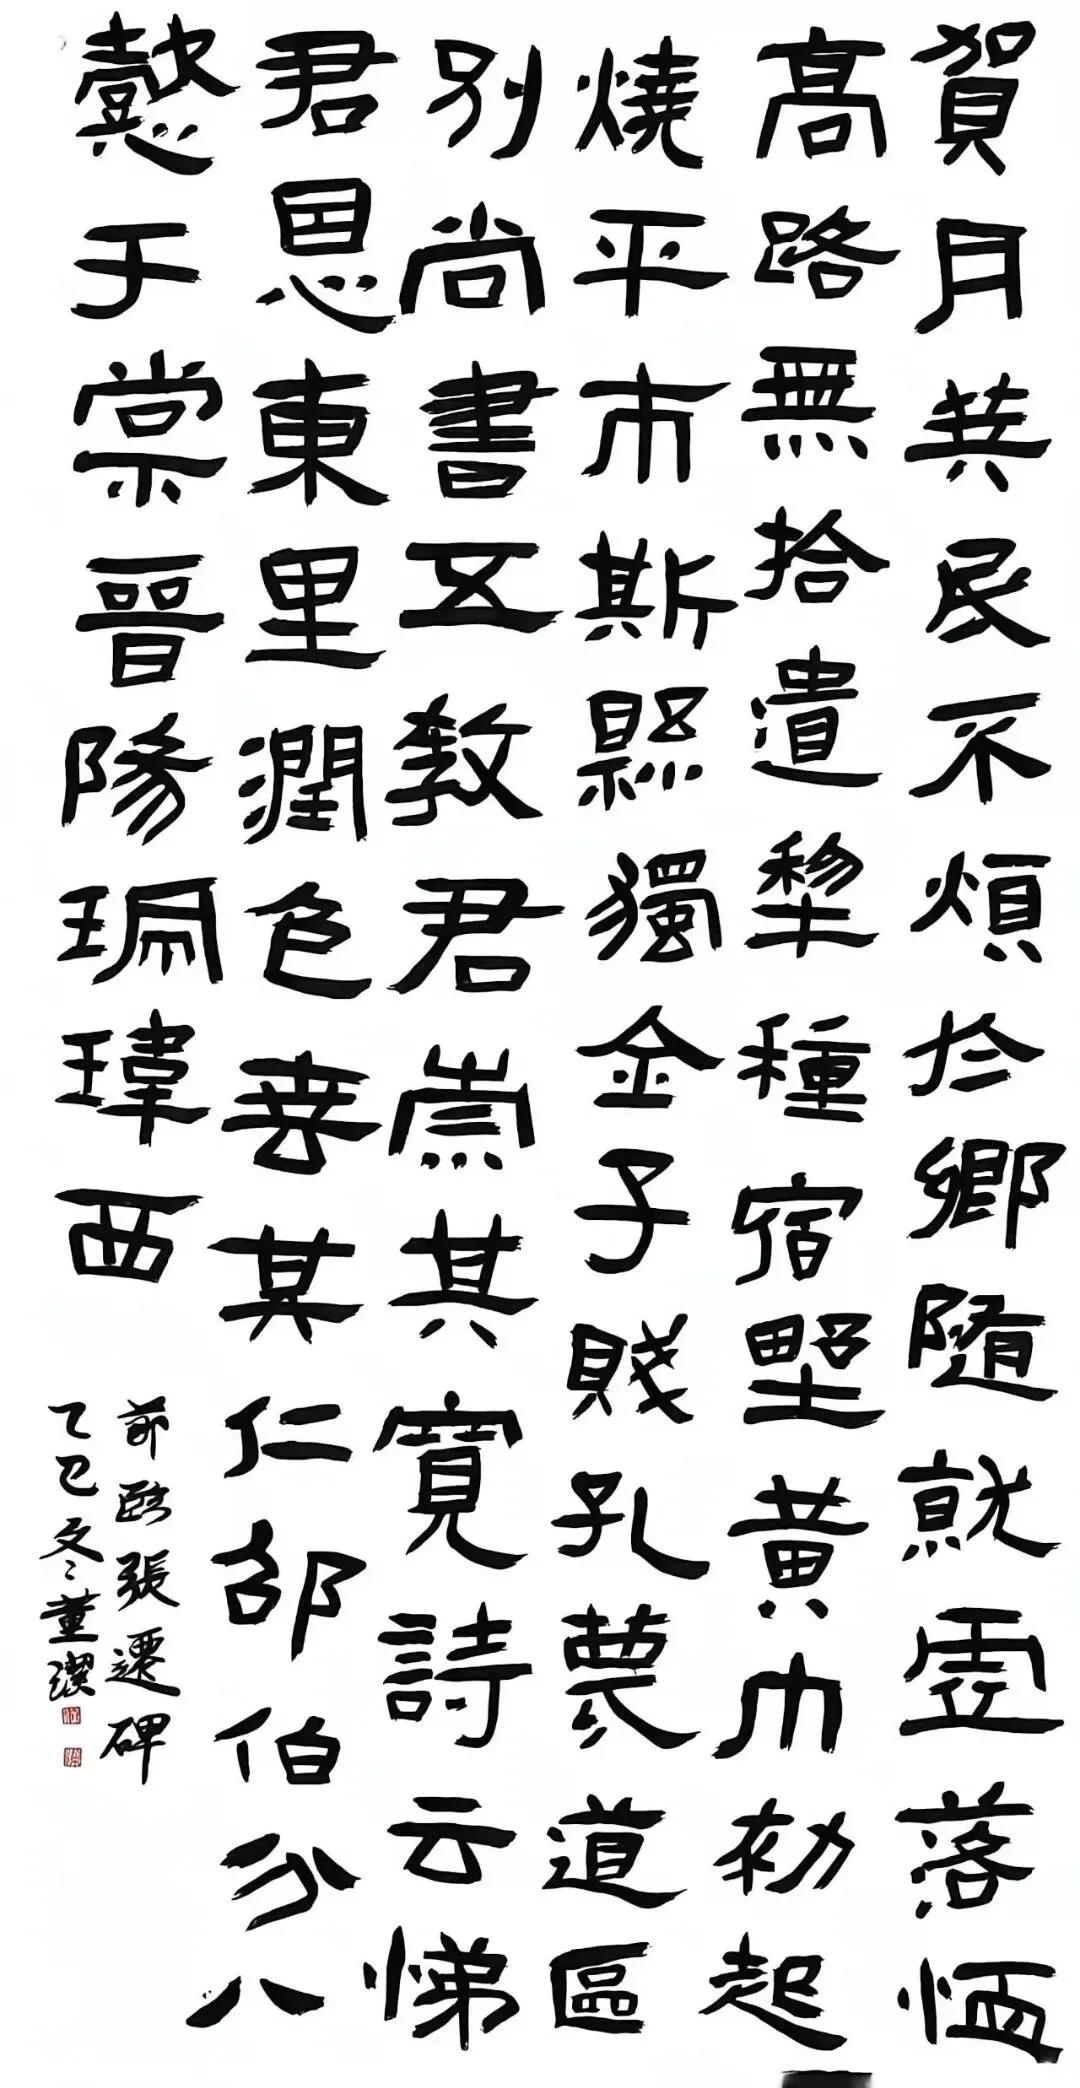 賀月共民不煩於鄉隨就虛落恤
高路無拾遺犂種宿野黃巾初起
燒平市斯縣獨金子賤孔蔑道區
別尚書五教君崇其寬詩云悌
君恩東里潤色善其仁邵伯分八
懿于棠晉陽珮瑋西
節臨張遷碑
乙巳冬董潔